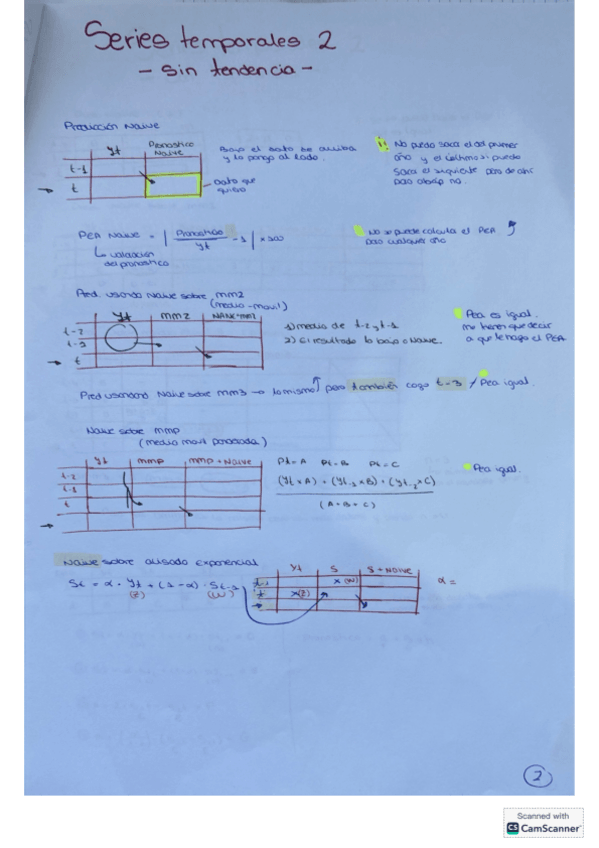 Series temporales 2
- sin tendencia -
Producción Naive
Yt Pronostico Naive
t-1
t
Bajo el dato de arriba
y lo pongo al lado.
Dato que quiero
No puedo sacar el del primer
año y el último si puedo
sacar el siguiente pero de ahí
para abajo no.
PEA Naive = | Pronostico / Yt - 1 | x 100
↳ validación
del pronostico
No se puede calcular el PEA
para cualquier año
Pred. usando Naive sobre mm2
(media-movil)
Yt mm2 Naive+mm2
t-2
t-1
t
1) media de t-2 y t-1
2) El resultado lo bajo a Naive.
Pea es igual.
me tienen que decir
a que le hago el PEA
Pred usando Naive sobre mm3 → lo mismo pero también cogo t-3 / Pea igual.
Naive sobre mmp
(media movil ponderada)
Yt mmp mmp + Naive
t-2
t-1
t
Pt=A Pt=B Pt=C
(Yt x A) + (Yt-1 x B) + (Yt-2 x C)
(A+B+C)
Pea igual.
Naive sobre alisado exponencial
St = α · Yt + (1-α) · St-1
(Z) (W)
Yt S S+Naive
t-1 x (W)
t x(Z)
α =
2
Scanned with
CS CamScanner